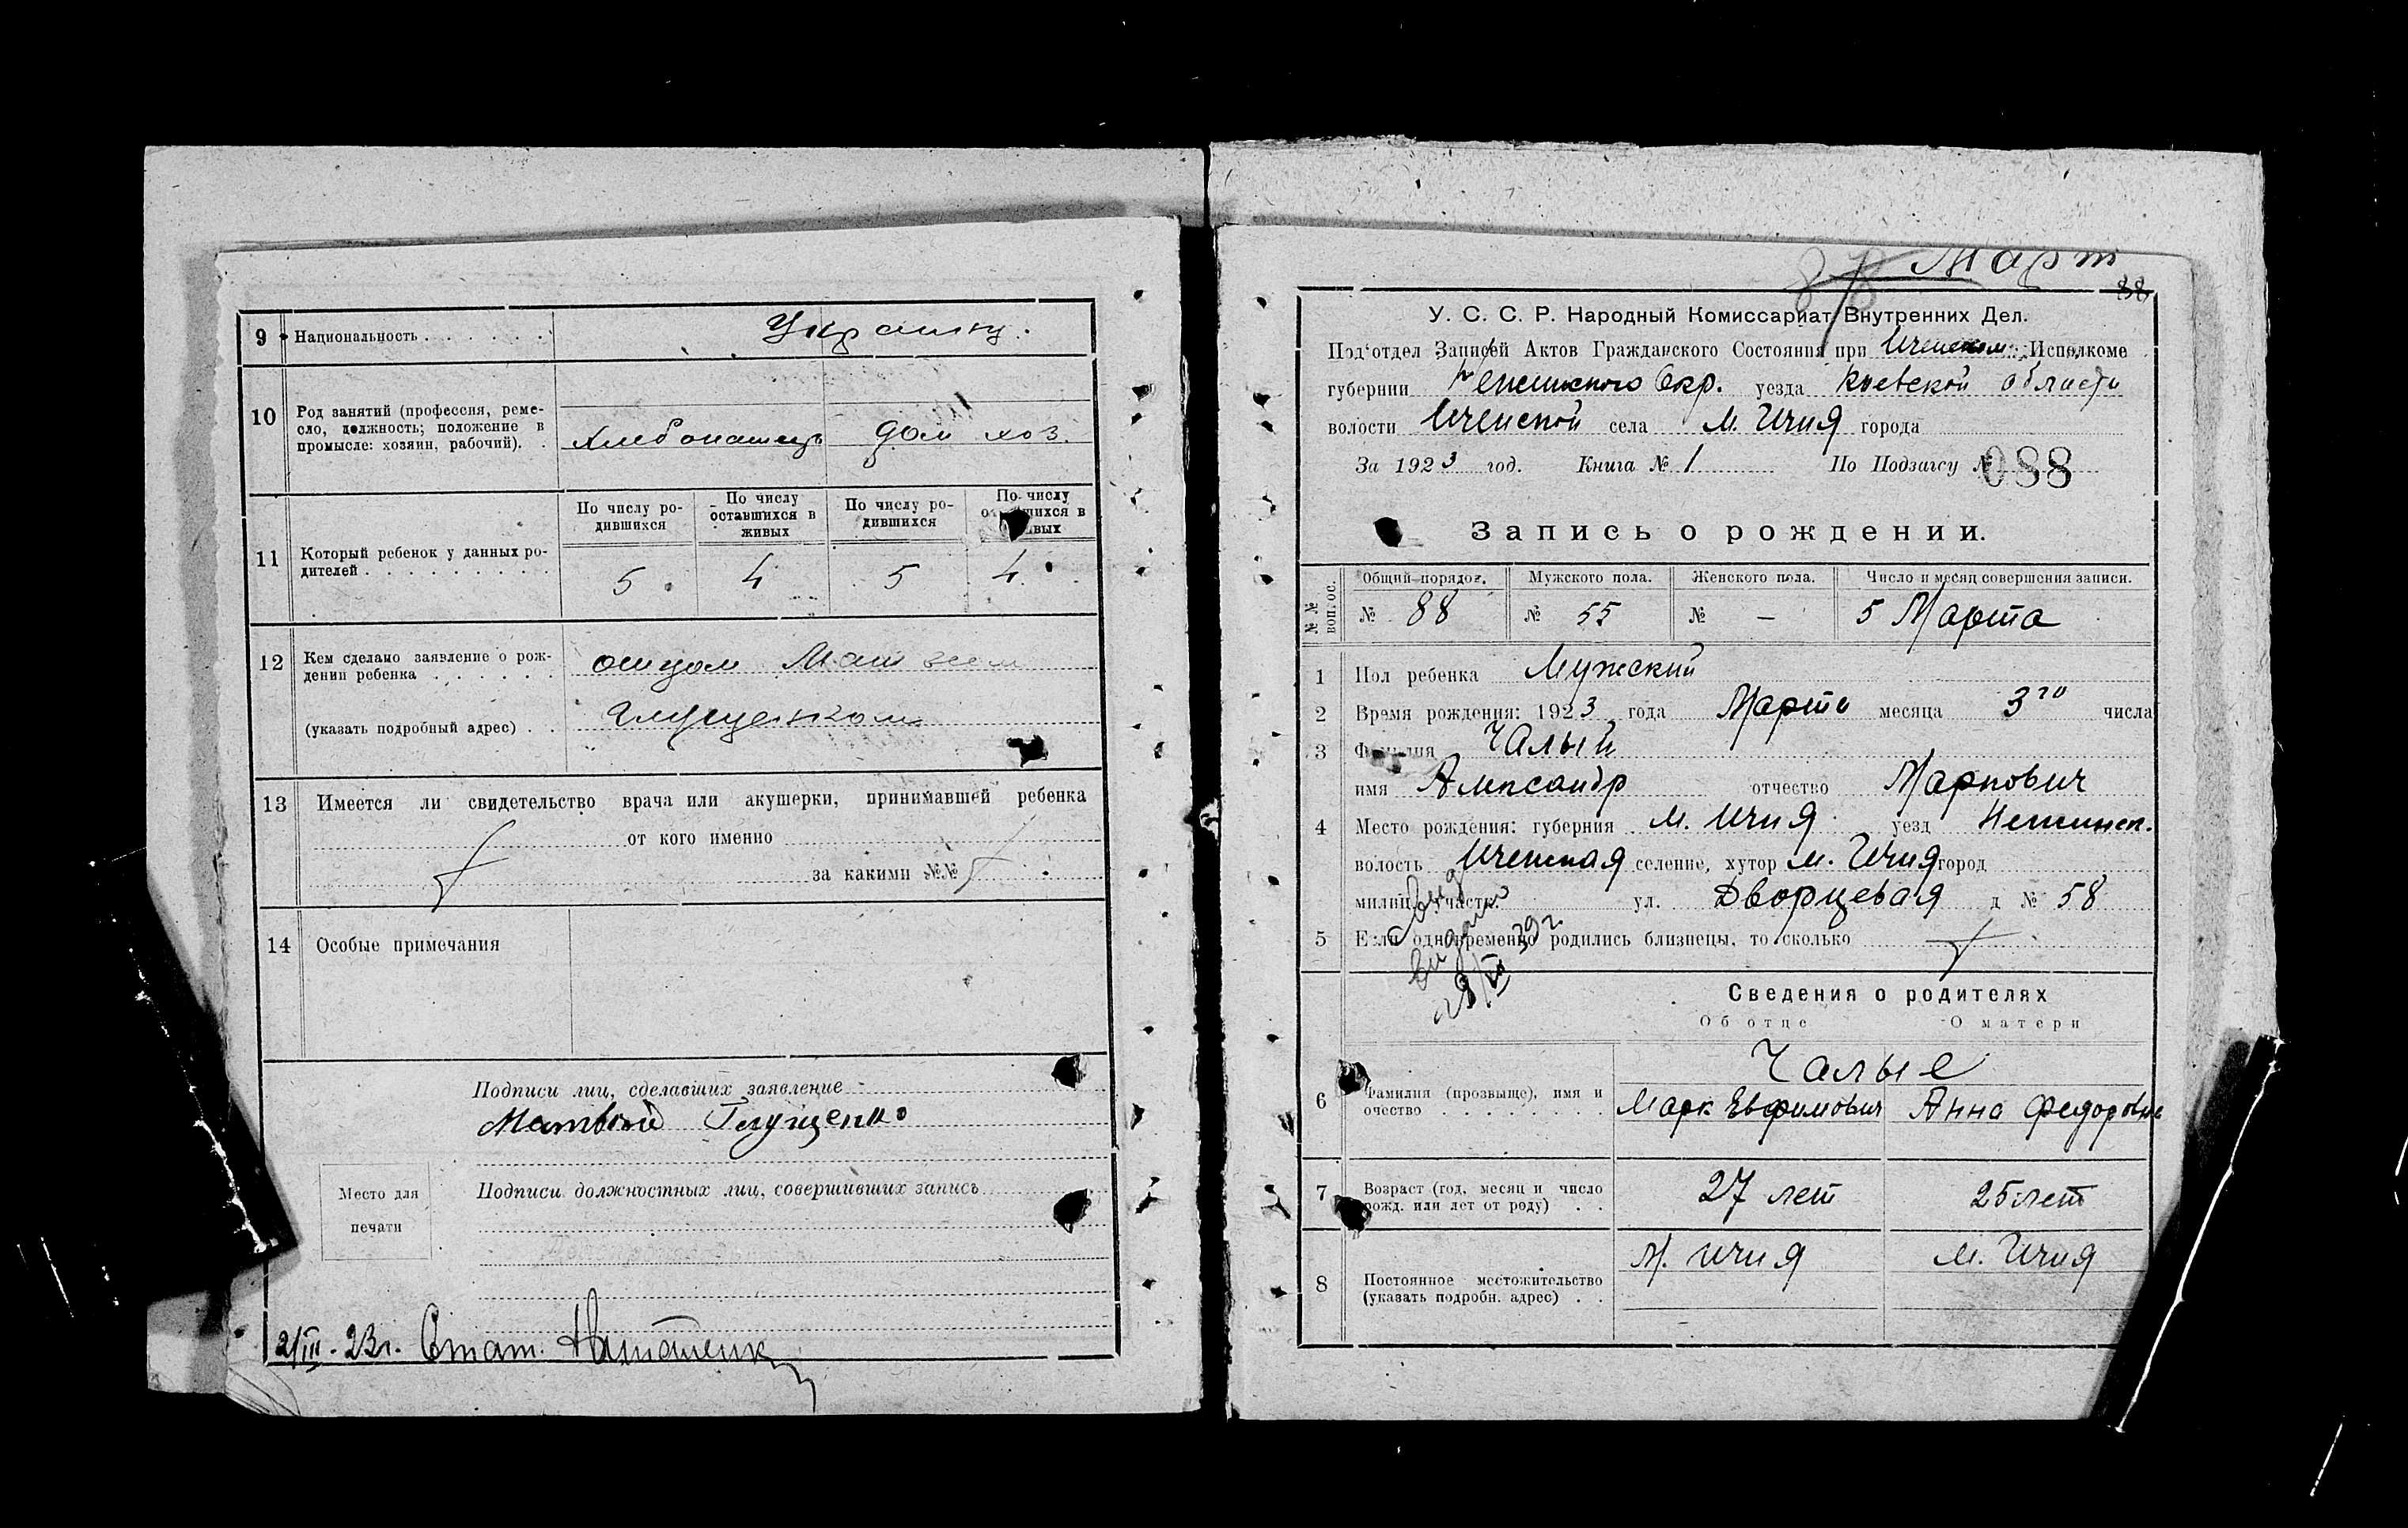 9 Национальность . . . . . . Украинц.
10 Род занятий (профессия, реме-
сло, должность; положение в
промысле: хозяин, рабочий). .
Хлебопашец дом хоз.
11 Который ребенок у данных ро-
дителей . . . . . . . . .
По числу ро-
дившихся
По числу
оставшихся в
живых
По числу ро-
дившихся
По числу
5 4 5 4
12 Кем сделано заявление о рож-
дении ребенка . . . . . .
(указать подробный адрес) . .
отцом Матвеем
Глущенком
13 Имеется ли свидетельство врача или акушерки, принимавшей ребенка
от кого именно
за какими №№
14 Особые примечания
Подписи лиц, сделавших заявление
Матвей Глущенко
Место для
печати
Подписи должностных лиц, совершивших запись
2/III - 23г. Стат.
Март
88
У. С. С. Р. Народный Комиссариат Внутренних Дел.
Под'отдел Записей Актов Гражданского Состояния при Иченском Исполкоме
губернии Нежинского Окр. уезда Киевской области
волости Иченской села М. Ичня города
За 1923 год. Книга № 1 По Подзагсу № 088
Запись о рождении.
№№ вопрос.
Общий порядок. Мужского пола. Женского пола. Число и месяц совершения записи.
№ 88 № 55 № — 5 Марта
1 Пол ребенка Мужский
2 Время рождения: 1923 года Марта месяца 3го числа
3 Фамилия Чалый
имя Александр отчество Маркович
4 Место рождения: губерния М. Ичня уезд Нежинск.
волость Иченская селение, хутор м. Ичня город
милиц. участк. ул. Дворцевая д № 58
5 Если одновременно родились близнецы, то сколько
28/IV 39 г.
Сведения о родителях
Об отце О матери
6 Фамилия (прозвыще), имя и
очество . . . . . . . .
Чалые
Марк Евфимович Анна Федоровна
7 Возраст (год, месяц и число
рожд. или лет от роду) . .
27 лет 25 лет
8 Постоянное местожительство
(указать подробн. адрес) . .
М. Ичня м. Ичня